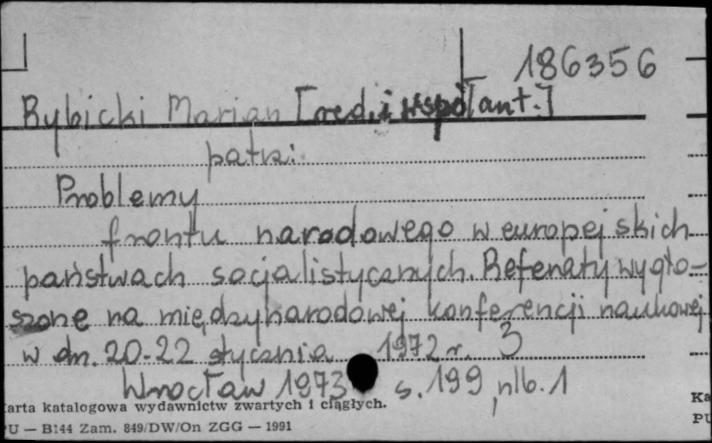 186356
Rybicki Marian [red. i współaut.]
patrz:
Problemy
frontu narodowego w europejskich
państwach socjalistycznych. Referaty wygło-
szone na międzynarodowej konferencji naukowej
w dn. 20-22 stycznia 1972 r. 3
Wrocław 1973 s. 199, nlb. 1
arta katalogowa wydawnictw zwartych i ciągłych.
PU — B144 Zam. 849/DW/On ZGG — 1991
Ka
PU